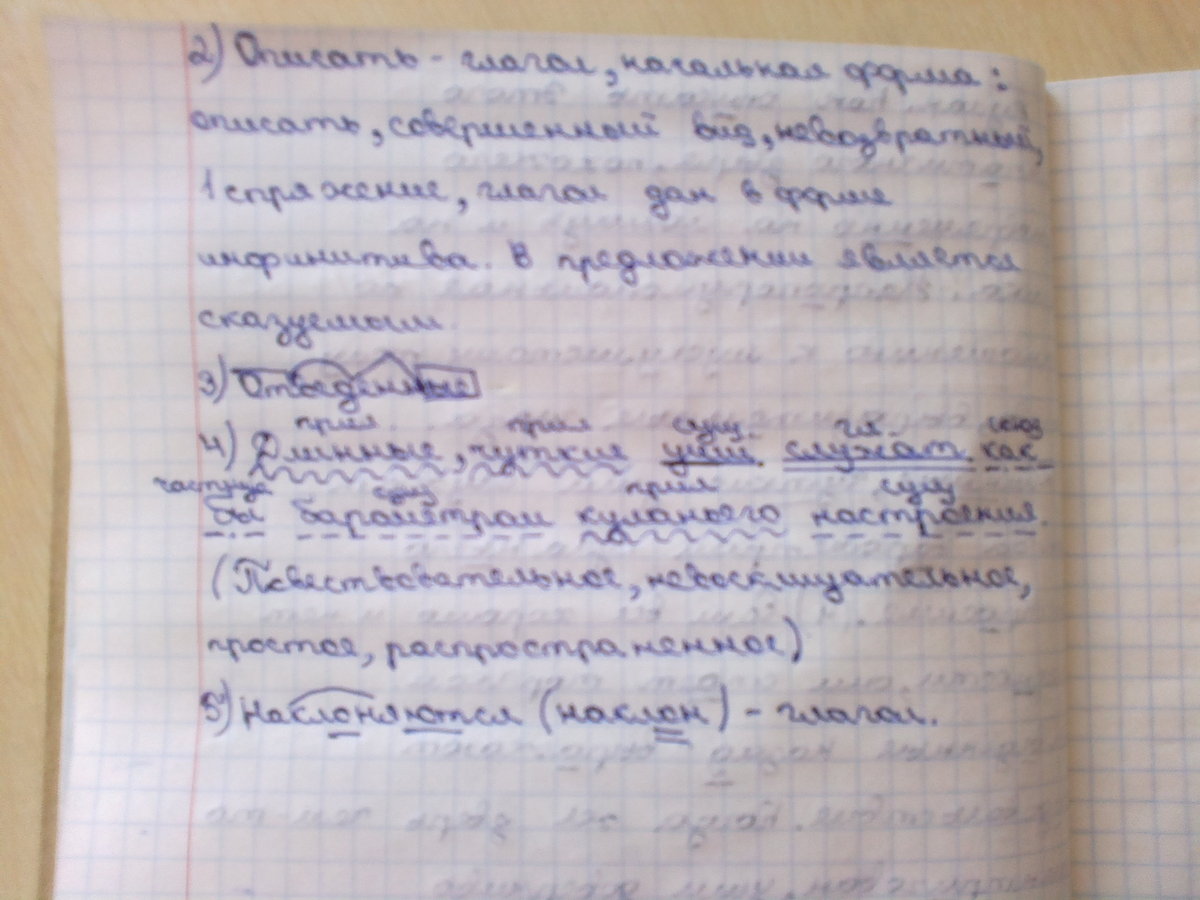 2) Описать - глагол, начальная форма:
описать, совершенный вид, невозвратный,
1 спряжение, глагол дан в форме
инфинитива. В предложении является
сказуемым.
3) Отъеденные
прил. прил сущ. гл. союз
4) Длинные, чуткие уши служат как
частица сущ прил сущ
бы барометром куланьего настроения.
(Повествовательное, невосклицательное,
простое, распространенное)
5) Наклоняются (наклон) - глагол.